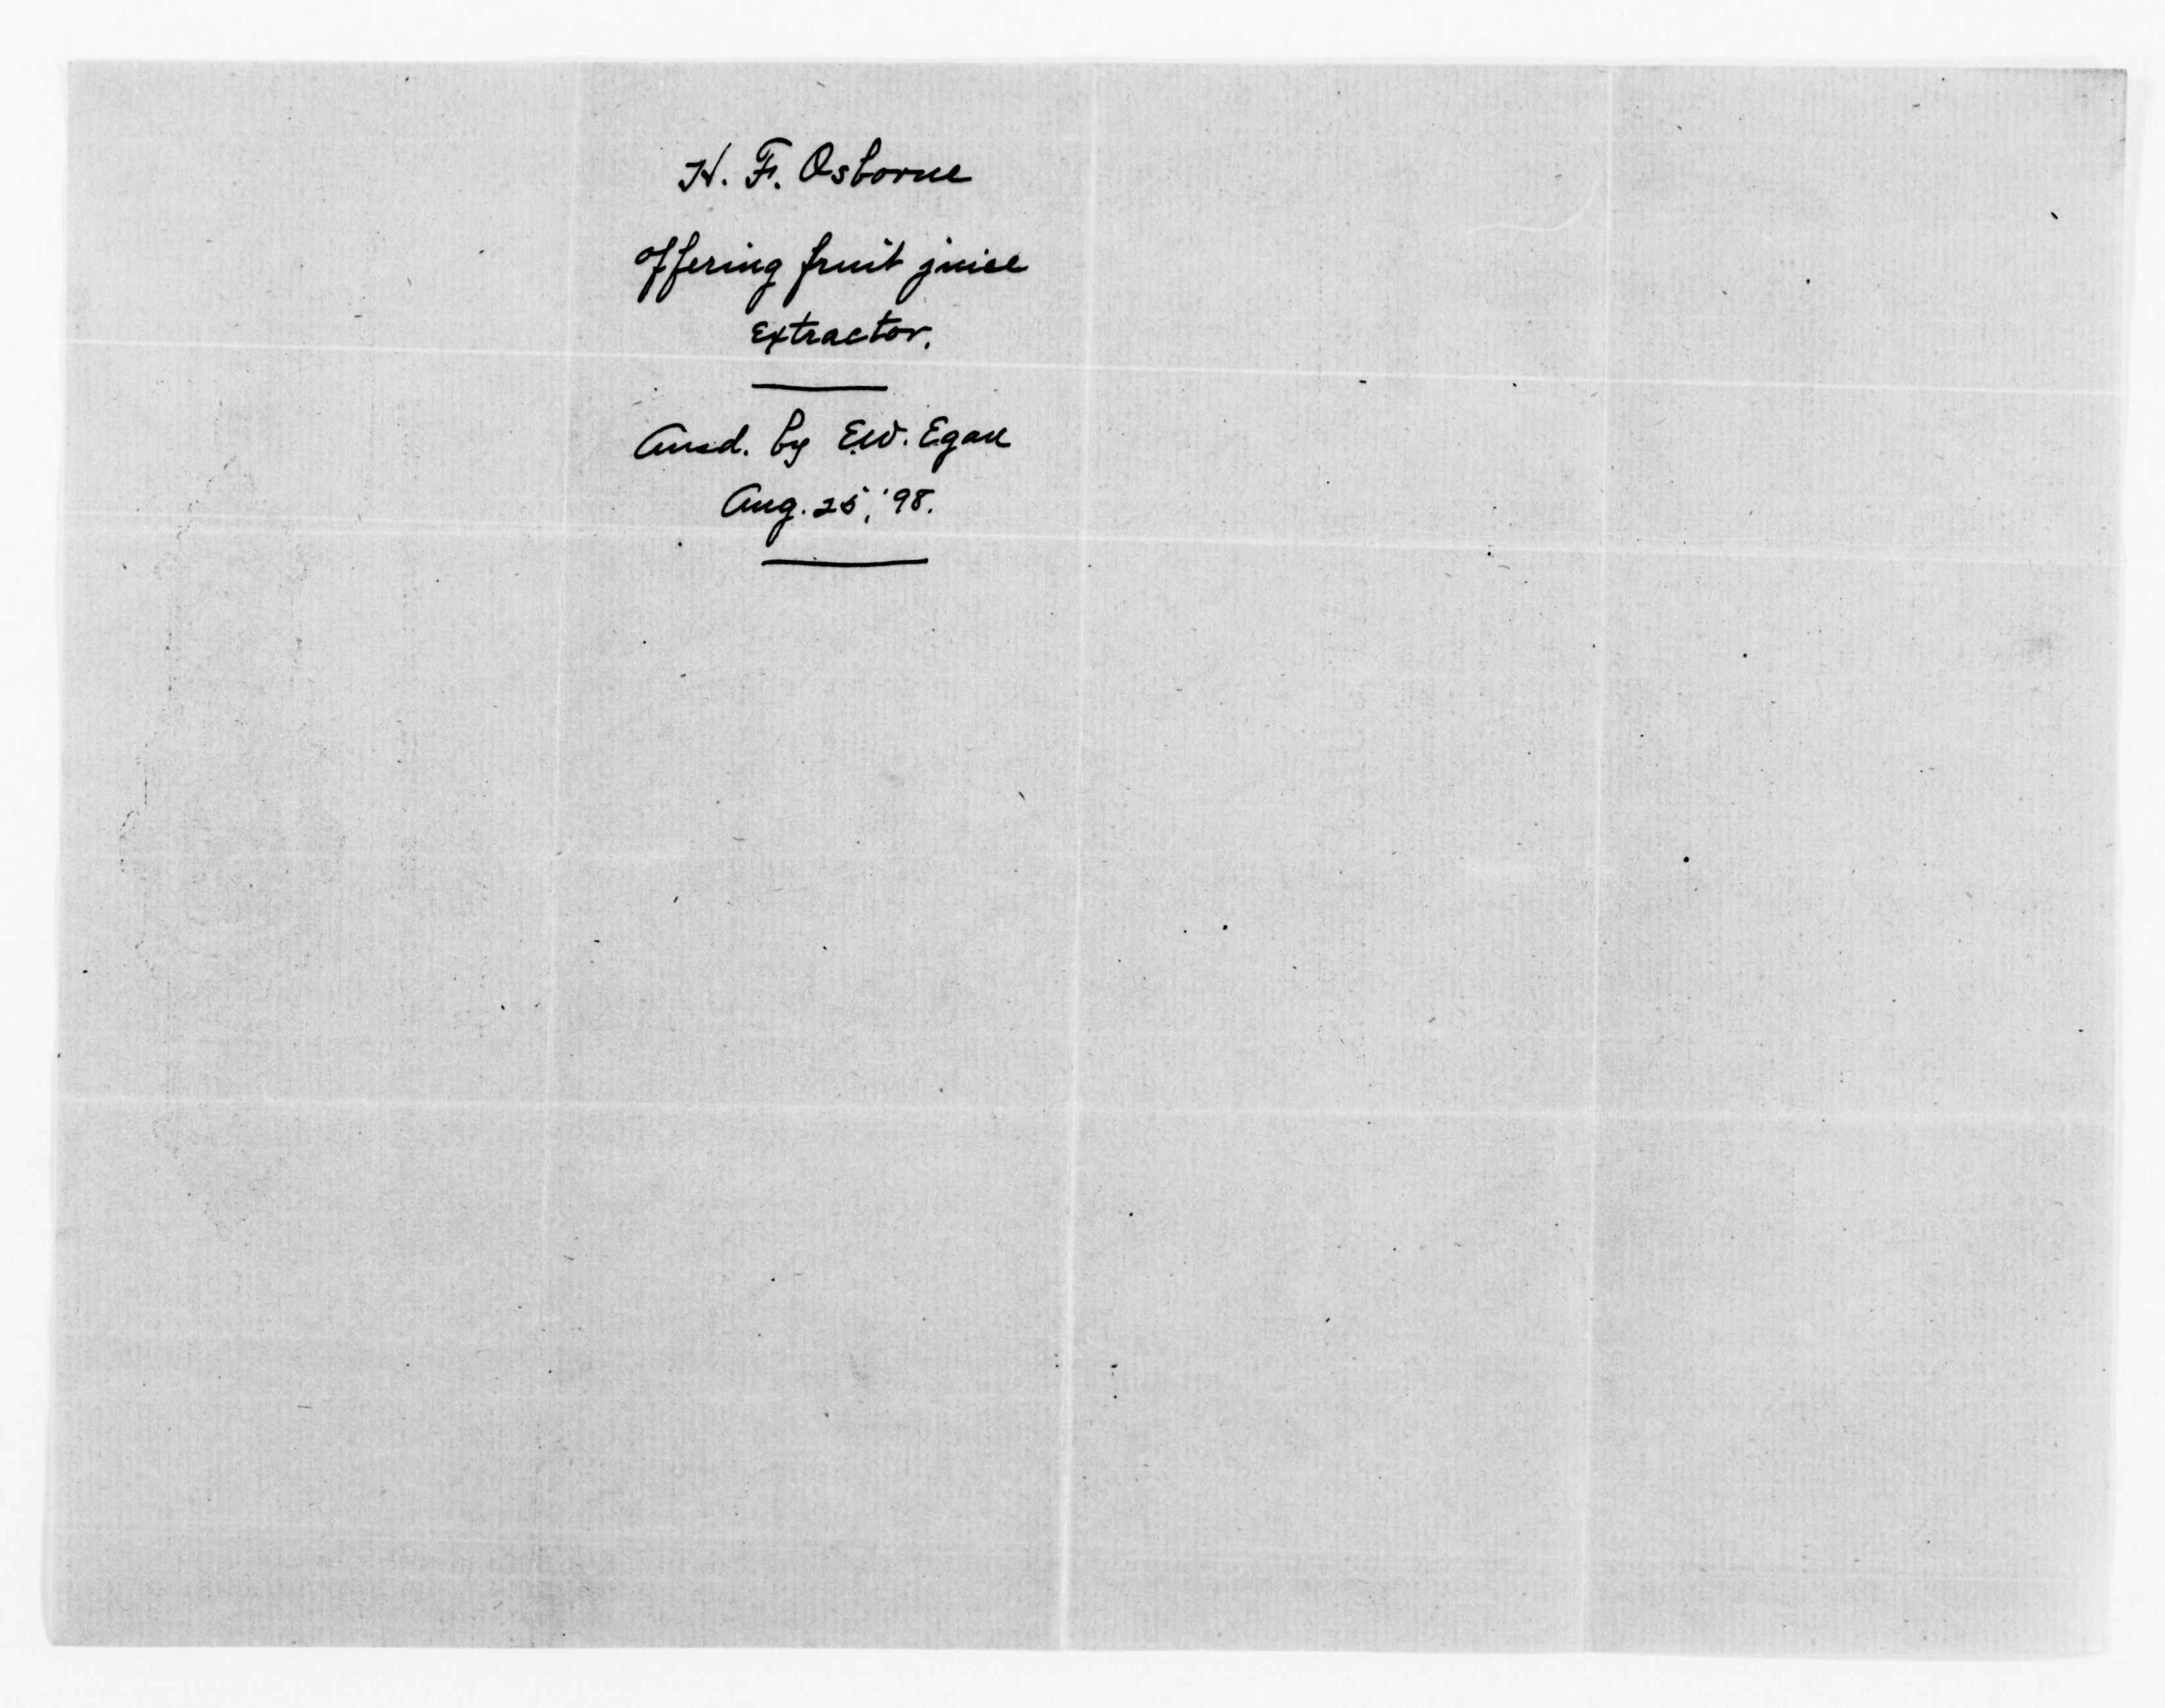 H. F. Osborne
offering fruit juice
extractor.
Ansd. by E.W. Egan
Aug. 25, '98.